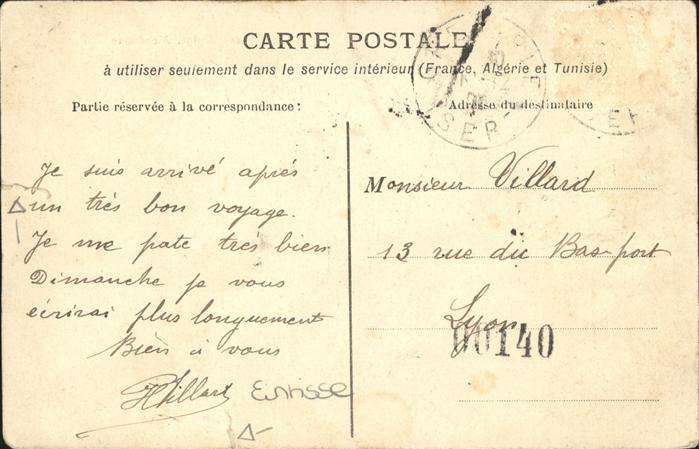 CARTE POSTALE
à utiliser seulement dans le service intérieur (France, Algérie et Tunisie)
Partie réservée à la correspondance:
Adresse du destinataire
Je suis arrivé après
un très bon voyage.
Je me pate très bien
Dimanche je vous
écrirai plus longuement
Bien à vous
HVillard
Monsieur Villard
13 rue du Bas-port
Lyon
00140